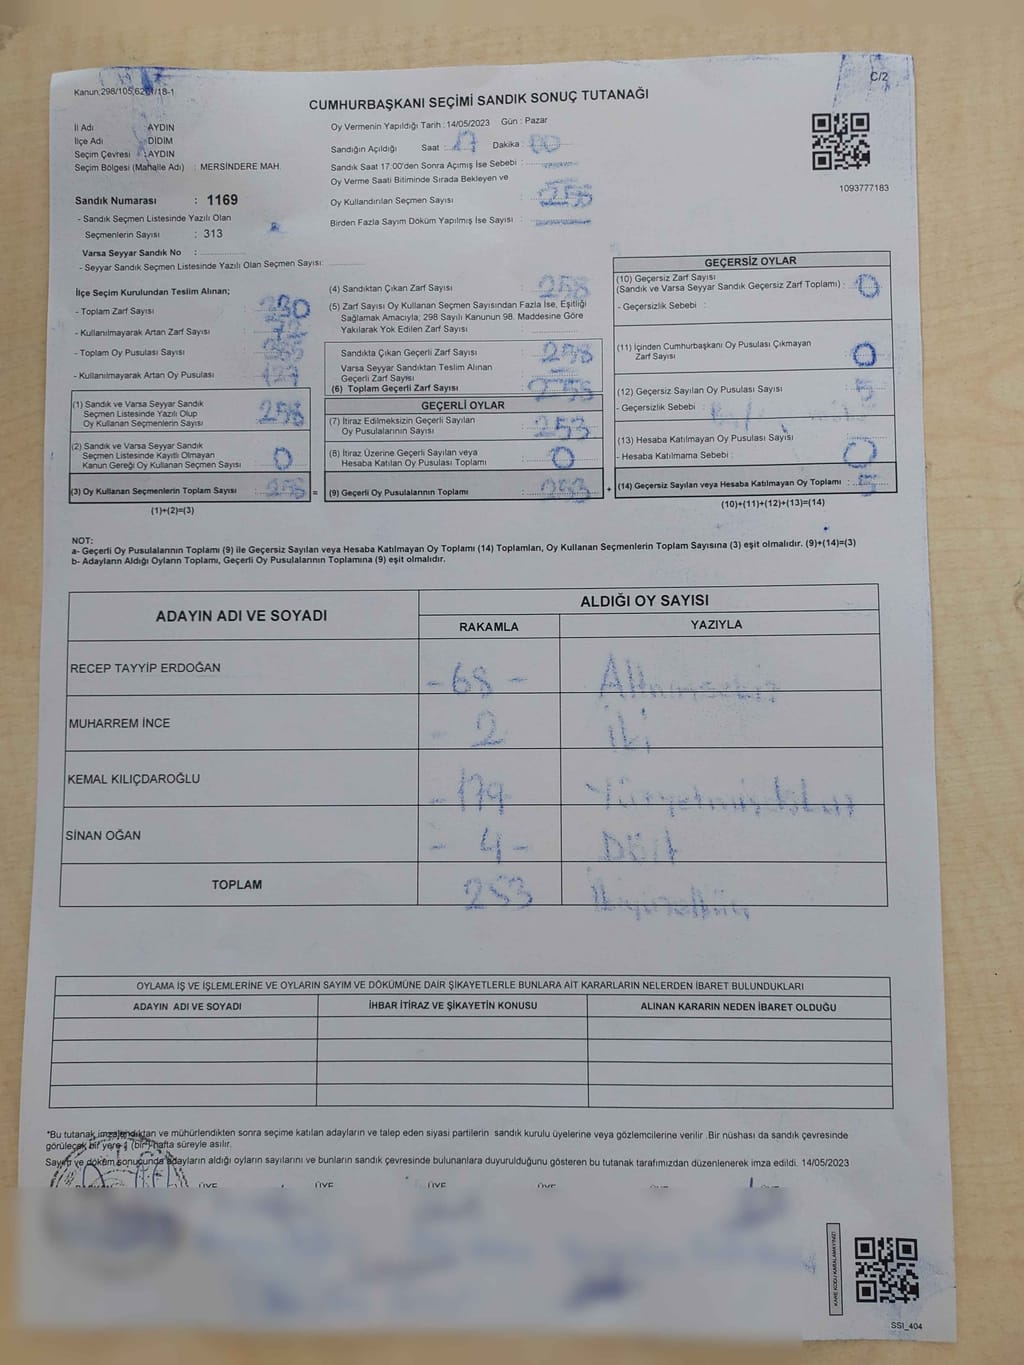 C/2
Kanun,298/105,
CUMHURBAŞKANI SEÇİMİ SANDIK SONUÇ TUTANAĞI
İl Adı : AYDIN
İlçe Adı : DİDİM
Seçim Çevresi : AYDIN
Seçim Bölgesi (Mahalle Adı) : MERSİNDERE MAH.
Oy Vermenin Yapıldığı Tarih : 14/05/2023 Gün : Pazar
Sandığın Açıldığı Saat : 17 Dakika : 00
Sandık Saat 17:00'den Sonra Açımış İse Sebebi :
Oy Verme Saati Bitiminde Sırada Bekleyen ve
Oy Kullandırılan Seçmen Sayısı : 258
Birden Fazla Sayım Döküm Yapılmış İse Sayısı :
1093777183
Sandık Numarası : 1169
- Sandık Seçmen Listesinde Yazılı Olan
Seçmenlerin Sayısı : 313
Varsa Seyyar Sandık No :
- Seyyar Sandık Seçmen Listesinde Yazılı Olan Seçmen Sayısı:
İlçe Seçim Kurulundan Teslim Alınan;
- Toplam Zarf Sayısı :
- Kullanılmayarak Artan Zarf Sayısı :
- Toplam Oy Pusulası Sayısı :
- Kullanılmayarak Artan Oy Pusulası :
(1) Sandık ve Varsa Seyyar Sandık
Seçmen Listesinde Yazılı Olup
Oy Kullanan Seçmenlerin Sayısı : 258
(2) Sandık ve Varsa Seyyar Sandık
Seçmen Listesinde Kayıtlı Olmayan
Kanun Gereği Oy Kullanan Seçmen Sayısı : 0
(3) Oy Kullanan Seçmenlerin Toplam Sayısı : 258 =
(1)+(2)=(3)
(4) Sandıktan Çıkan Zarf Sayısı : 258
(5) Zarf Sayısı Oy Kullanan Seçmen Sayısından Fazla İse, Eşitliği
Sağlamak Amacıyla, 298 Sayılı Kanunun 98. Maddesine Göre
Yakılarak Yok Edilen Zarf Sayısı :
Sandıkta Çıkan Geçerli Zarf Sayısı : 258
Varsa Seyyar Sandıktan Teslim Alınan
Geçerli Zarf Sayısı :
(6) Toplam Geçerli Zarf Sayısı : 258
GEÇERLİ OYLAR
(7) İtiraz Edilmeksizin Geçerli Sayılan
Oy Pusulalarının Sayısı : 253
(8) İtiraz Üzerine Geçerli Sayılan veya
Hesaba Katılan Oy Pusulası Toplamı : 0
(9) Geçerli Oy Pusulalarının Toplamı : 253 +
GEÇERSİZ OYLAR
(10) Geçersiz Zarf Sayısı
(Sandık ve Varsa Seyyar Sandık Geçersiz Zarf Toplamı) : 0
- Geçersizlik Sebebi :
(11) İçinden Cumhurbaşkanı Oy Pusulası Çıkmayan
Zarf Sayısı : 0
(12) Geçersiz Sayılan Oy Pusulası Sayısı : 5
- Geçersizlik Sebebi :
(13) Hesaba Katılmayan Oy Pusulası Sayısı :
- Hesaba Katılmama Sebebi : 0
(14) Geçersiz Sayılan veya Hesaba Katılmayan Oy Toplamı : 5
(10)+(11)+(12)+(13)=(14)
NOT:
a- Geçerli Oy Pusulalarının Toplamı (9) ile Geçersiz Sayılan veya Hesaba Katılmayan Oy Toplamı (14) Toplamları, Oy Kullanan Seçmenlerin Toplam Sayısına (3) eşit olmalıdır. (9)+(14)=(3)
b- Adayların Aldığı Oyların Toplamı, Geçerli Oy Pusulalarının Toplamına (9) eşit olmalıdır.
ADAYIN ADI VE SOYADI
ALDIĞI OY SAYISI
RAKAMLA YAZIYLA
RECEP TAYYİP ERDOĞAN - 68 - Altmışsekiz
MUHARREM İNCE - 2 iki
KEMAL KILIÇDAROĞLU - 179 Yüzyetmişdokuz
SİNAN OĞAN - 4 - Dört
TOPLAM 253 ikiyüzelliüç
OYLAMA İŞ VE İŞLEMLERİNE VE OYLARIN SAYIM VE DÖKÜMÜNE DAİR ŞİKAYETLERLE BUNLARA AİT KARARLARIN NELERDEN İBARET BULUNDUKLARI
ADAYIN ADI VE SOYADI İHBAR İTİRAZ VE ŞİKAYETİN KONUSU ALINAN KARARIN NEDEN İBARET OLDUĞU
*Bu tutanak imzalandıktan ve mühürlendikten sonra seçime katılan adayların ve talep eden siyasi partilerin sandık kurulu üyelerine veya gözlemcilerine verilir .Bir nüshası da sandık çevresinde
görülecek bir yere 1 (bir) hafta süreyle asılır.
Sayım ve döküm sonucunda adayların aldığı oyların sayılarını ve bunların sandık çevresinde bulunanlara duyurulduğunu gösteren bu tutanak tarafımızdan düzenlenerek imza edildi. 14/05/2023
ÜYE ÜYE ÜYE ÜYE ÜYE ÜYE
KARE KODU KARALAMAYINIZ!
SSI_404